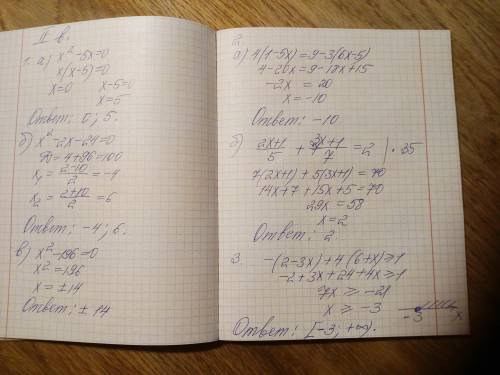 II в.
1. а) x² - 5x = 0
x(x-5) = 0
x = 0 x - 5 = 0
x = 5
Ответ: 0; 5.
б) x² - 2x - 24 = 0
D = 4 + 96 = 100
x₁ = (2-10)/2 = -4
x₂ = (2+10)/2 = 6
Ответ: -4; 6.
в) x² - 196 = 0
x² = 196
x = ± 14
Ответ: ± 14
2
а) 4(1-5x) = 9 - 3(6x-5)
4 - 20x = 9 - 18x + 15
-2x = 20
x = -10
Ответ: -10
б) (2x+1)/5 + (3x+1)/7 = 2 | · 35
7(2x+1) + 5(3x+1) = 70
14x + 7 + 15x + 5 = 70
29x = 58
x = 2
Ответ: 2
3. -(2-3x) + 4(6+x) ≥ 1
-2 + 3x + 24 + 4x ≥ 1
7x ≥ -21
x ≥ -3 -3 x
Ответ: [-3; +∞).